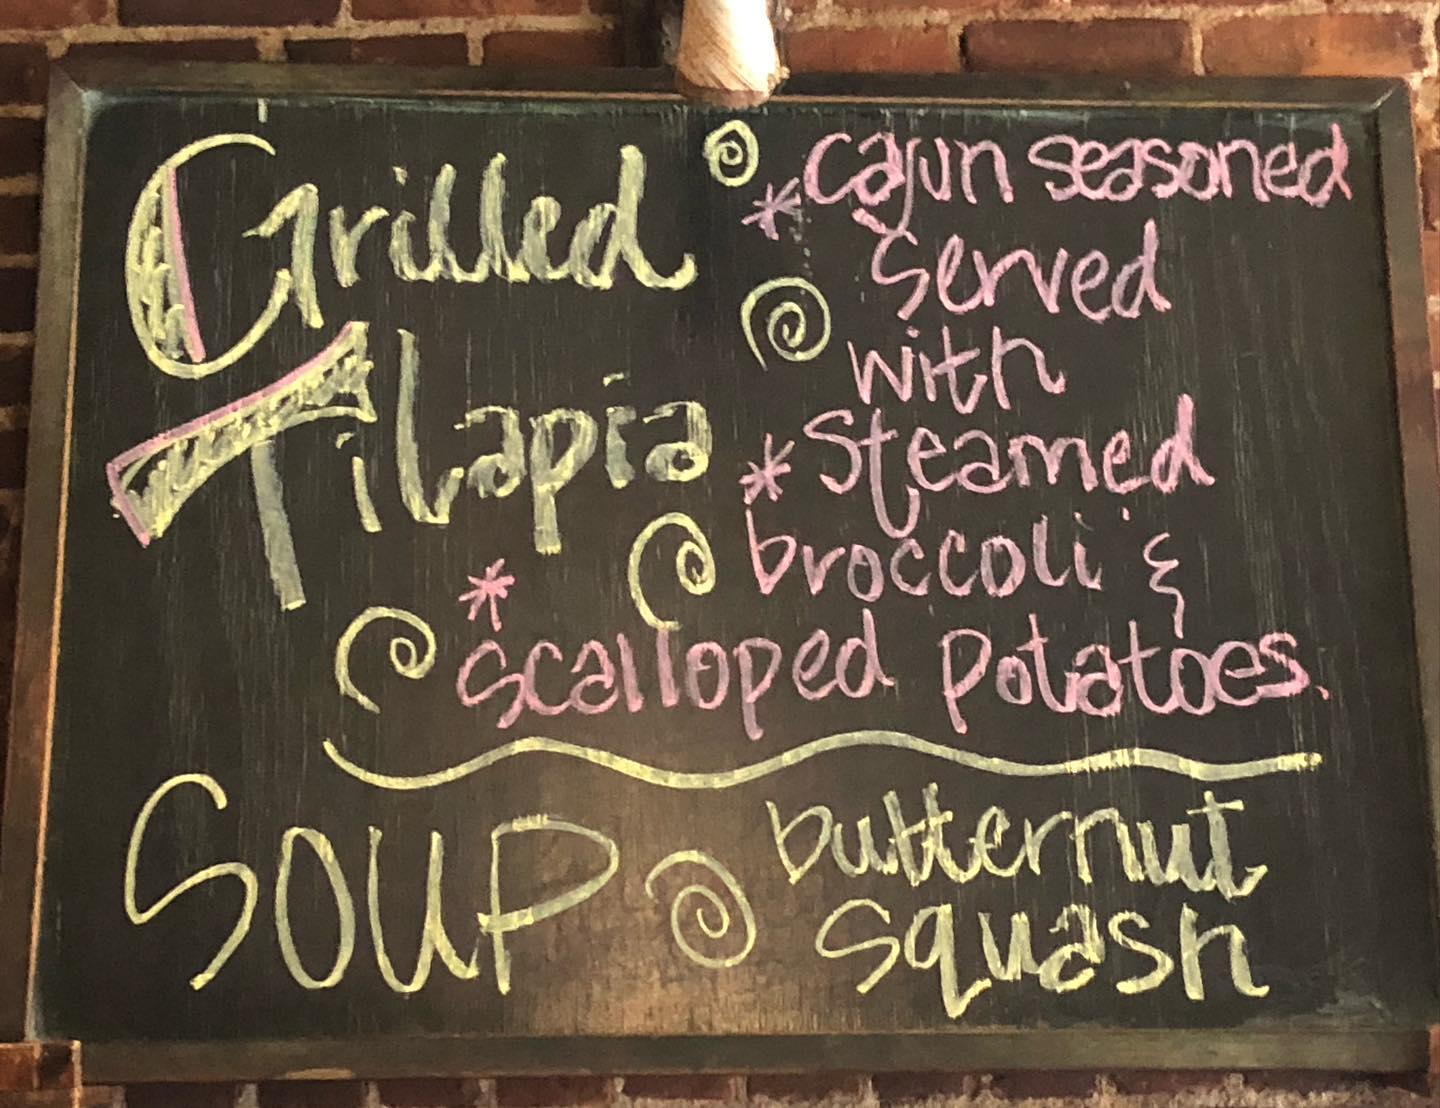 Grilled
Tilapia
cajun seasoned
served
with
Steamed
broccoli &
scalloped potatoes.
SOUP
butternut
squash